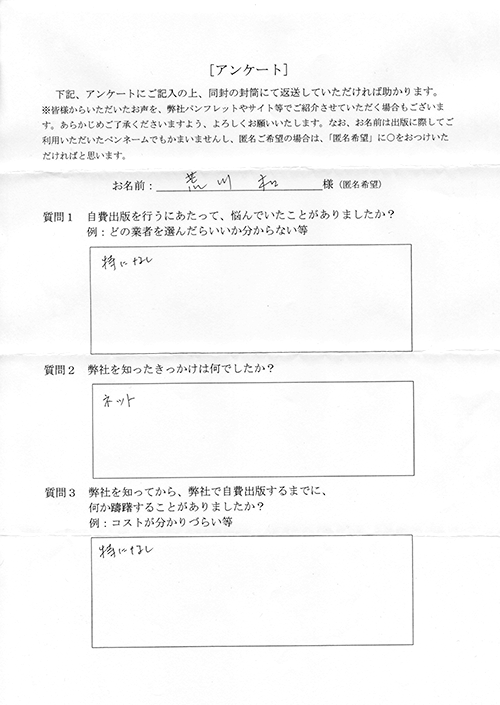 [アンケート]
下記、アンケートにご記入の上、同封の封筒にて返送していただければ助かります。
※皆様からいただいたお声を、弊社パンフレットやサイト等でご紹介させていただく場合もございま
す。あらかじめご了承くださいますよう、よろしくお願いいたします。なお、お名前は出版に際してご
利用いただいたペンネームでもかまいませんし、匿名ご希望の場合は、「匿名希望」に○をおつけいた
だければと思います。
お名前：荒川 和 様（匿名希望）
質問１ 自費出版を行うにあたって、悩んでいたことがありましたか？
例：どの業者を選んだらいいか分からない等
特になし
質問２ 弊社を知ったきっかけは何でしたか？
ネット
質問３ 弊社を知ってから、弊社で自費出版するまでに、
何か躊躇することがありましたか？
例：コストが分かりづらい等
特になし